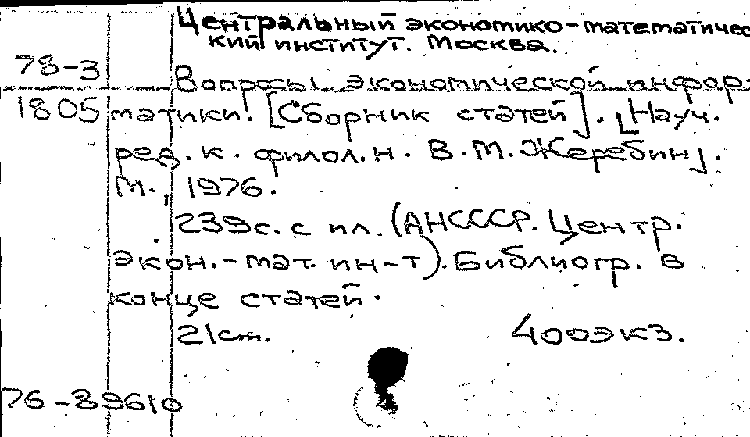 Центральный экономико-математичес
кий институт. Москва.
78-3
Вопросы экономической инфор
1805 матики. [Сборник статей]. [Науч.
ред. к. филол. н. В.М. Жеребин].
М., 1976.
239с. с ил. (АНСССР. Центр.
экон.-мат. ин-т). Библиогр. в
конце статей.
21см. 400экз.
76-89610